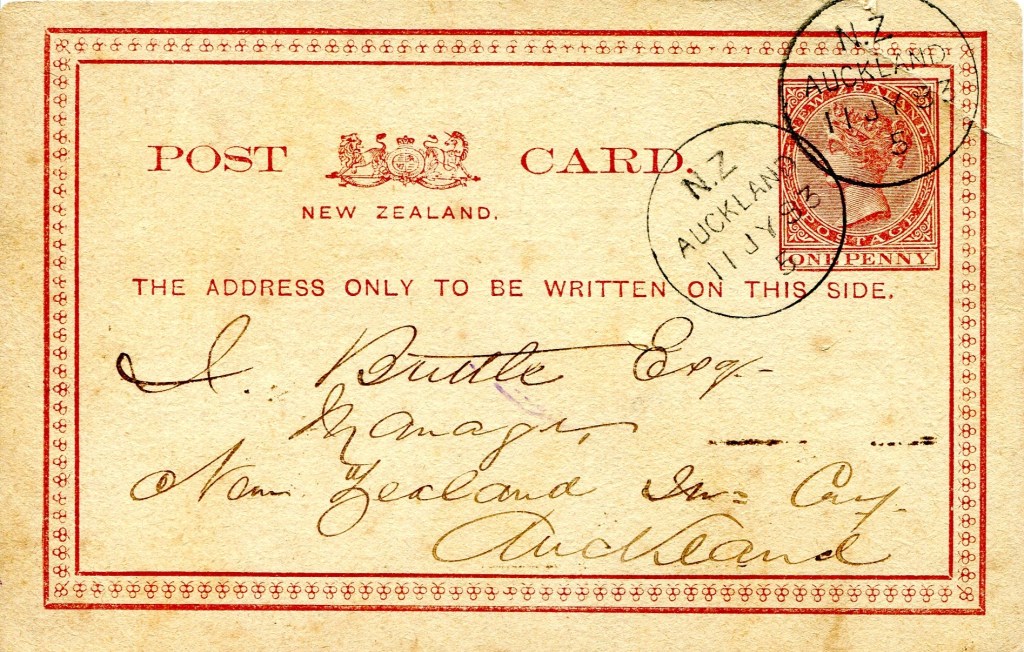 POST CARD.
NEW ZEALAND.
THE ADDRESS ONLY TO BE WRITTEN ON THIS SIDE.
NEW ZEALAND
POSTAGE
ONE PENNY
N.Z
AUCKLAND
11 JY 83
5
N.Z
AUCKLAND
11 JY 83
5
J. Buttle Esq.
Manager
New Zealand Ins= Coy.
Auckland